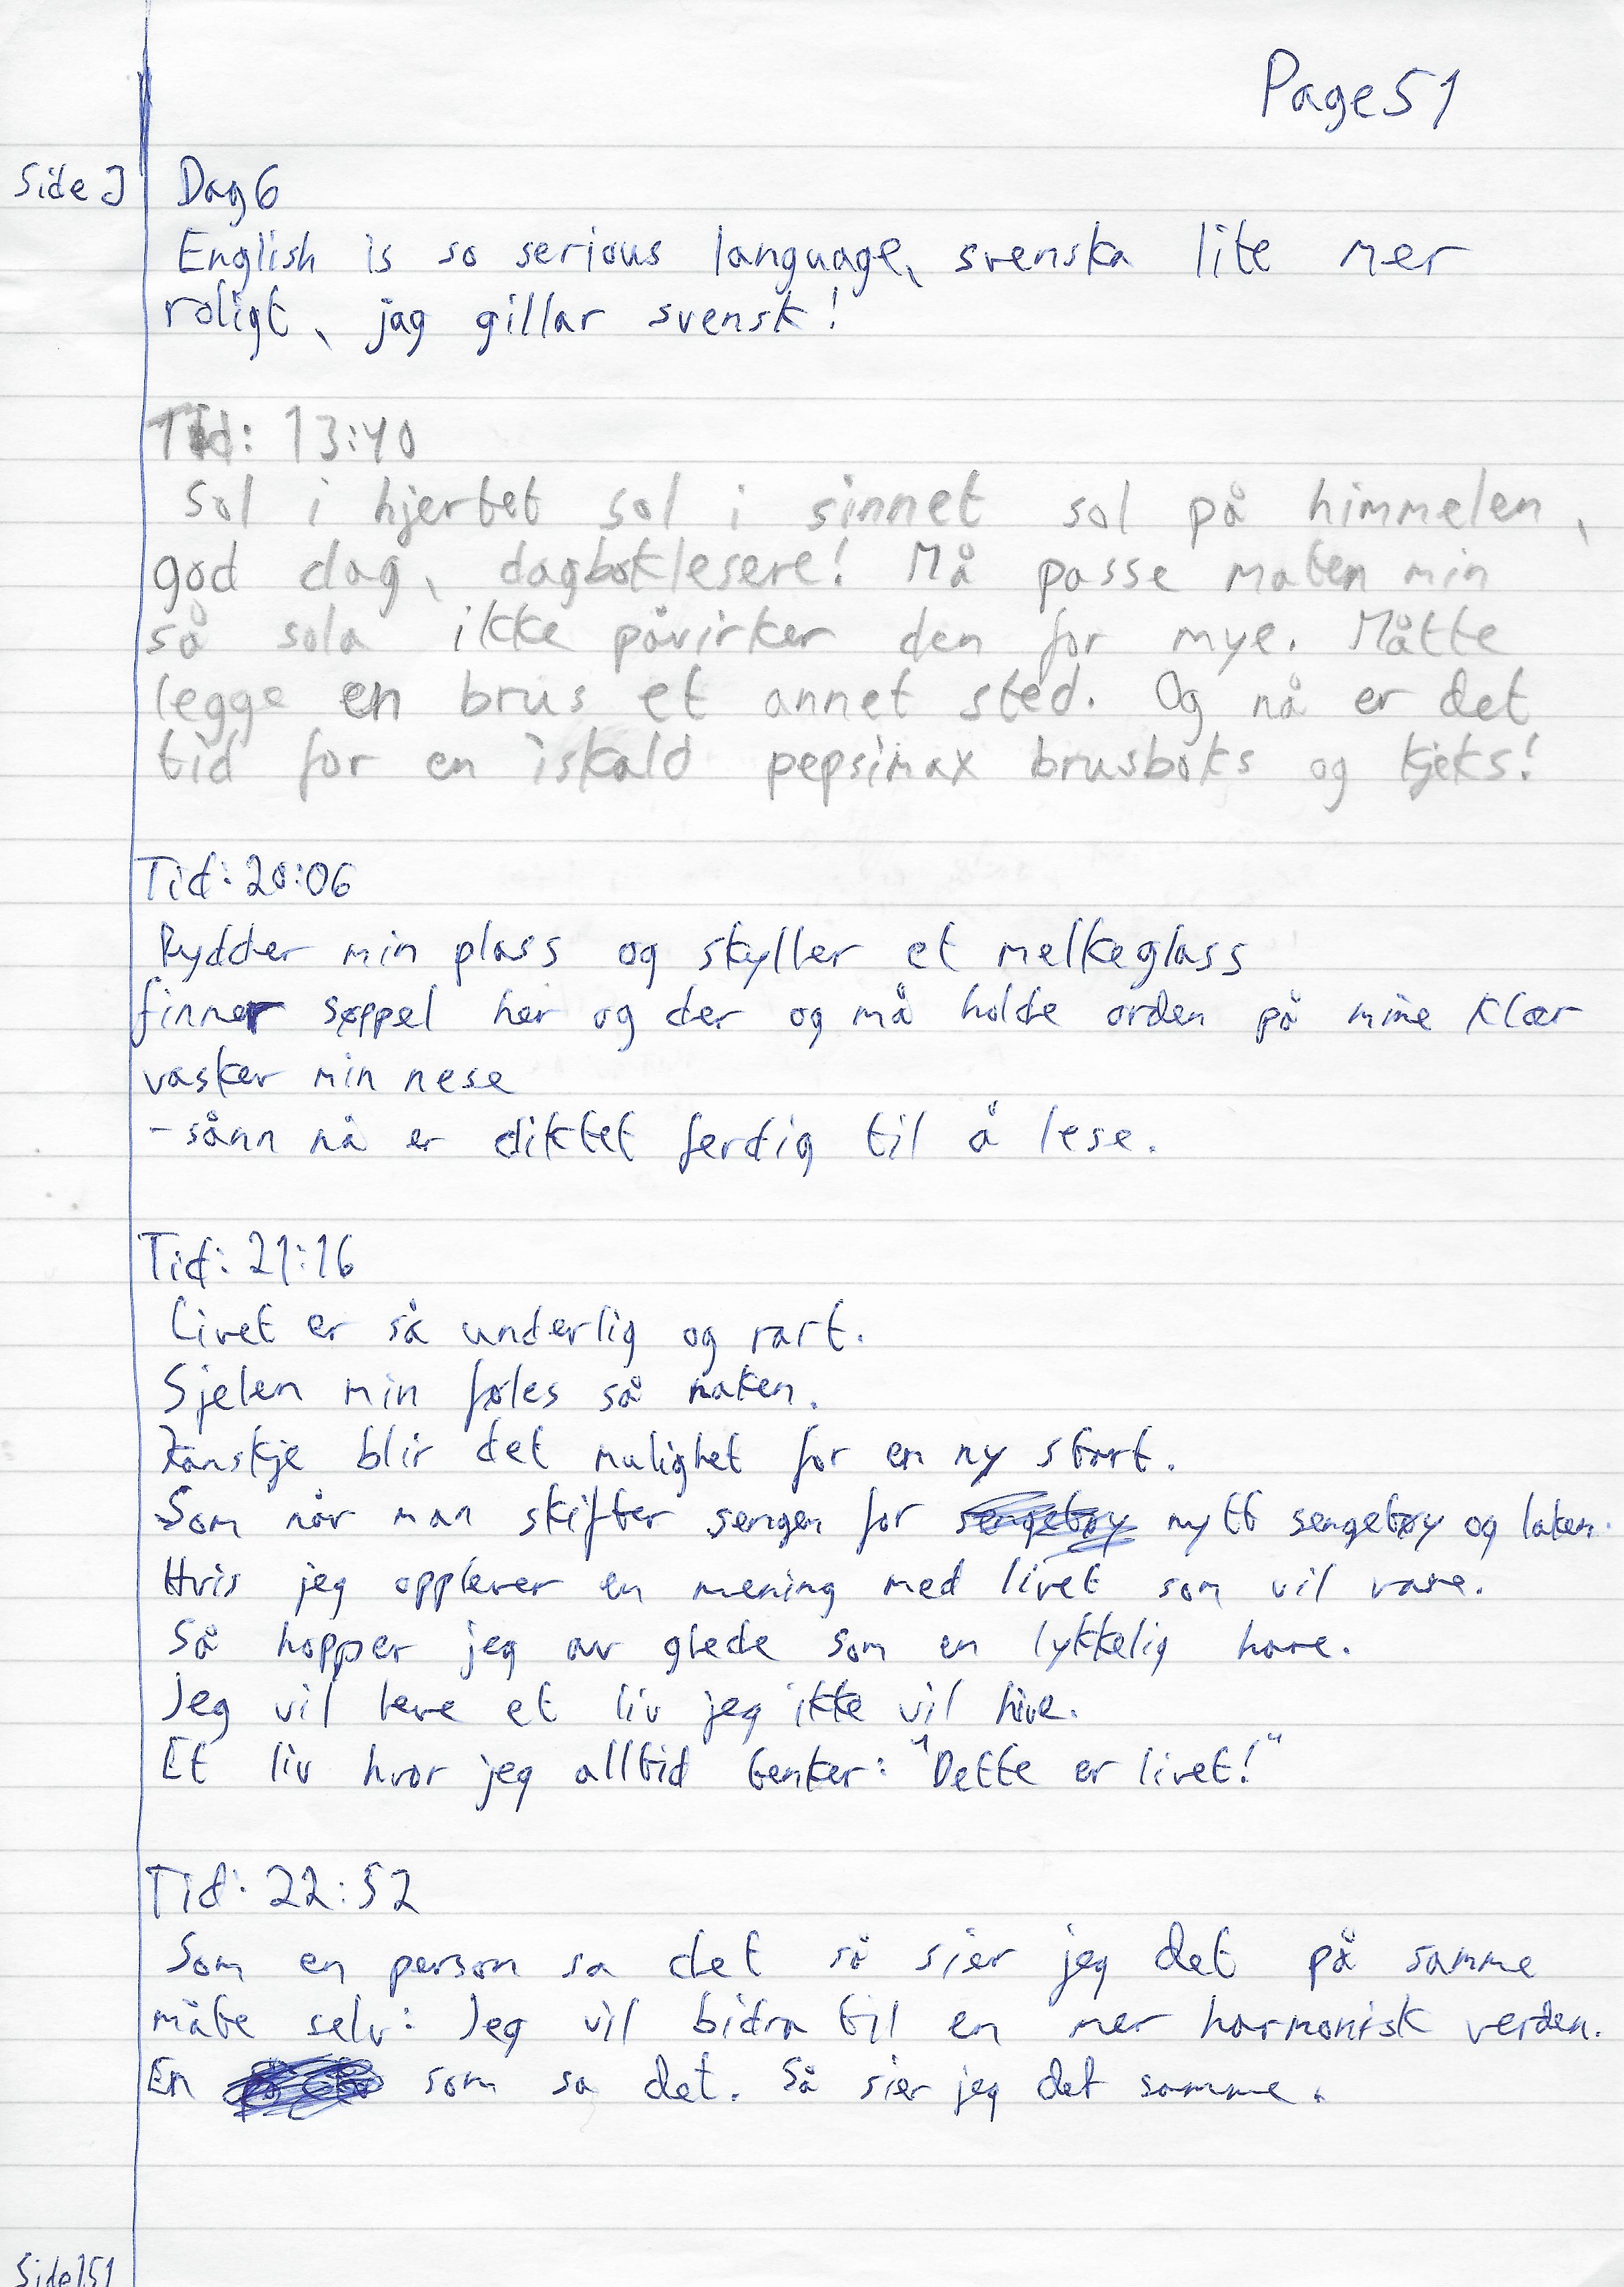 Page 51
Side J
Dag 6
English is so serious language, svenska lite mer
roligt, jag gillar svensk!
Tid: 13:40
Sol i hjertet sol i sinnet sol på himmelen,
god dag, dagboklesere! Må passe maten min
så sola ikke påvirker den for mye. Måtte
legge en brus et annet sted. Og nå er det
tid for en iskald pepsimax brusboks og kjeks!
Tid: 20:06
Rydder min plass og skyller et melkeglass
finner søppel her og der og må holde orden på mine klær
vasker min nese
-sånn nå er diktet ferdig til å lese.
Tid: 21:16
Livet er så underlig og rart.
Sjelen min føles så naken.
Kanskje blir det mulighet for en ny start.
Som når man skifter sengen for sengetøy nytt sengetøy og laken.
Hvis jeg opplever en mening med livet som vil vare.
Så hopper jeg av glede som en lykkelig hare.
Jeg vil leve et liv jeg ikke vil hive.
Et liv hvor jeg alltid tenker: "Dette er livet!"
Tid: 22:52
Som en person sa det så sier jeg det på samme
måte selv: Jeg vil bidra til en mer harmonisk verden.
En som sa det. Så sier jeg det samme.
Side 151